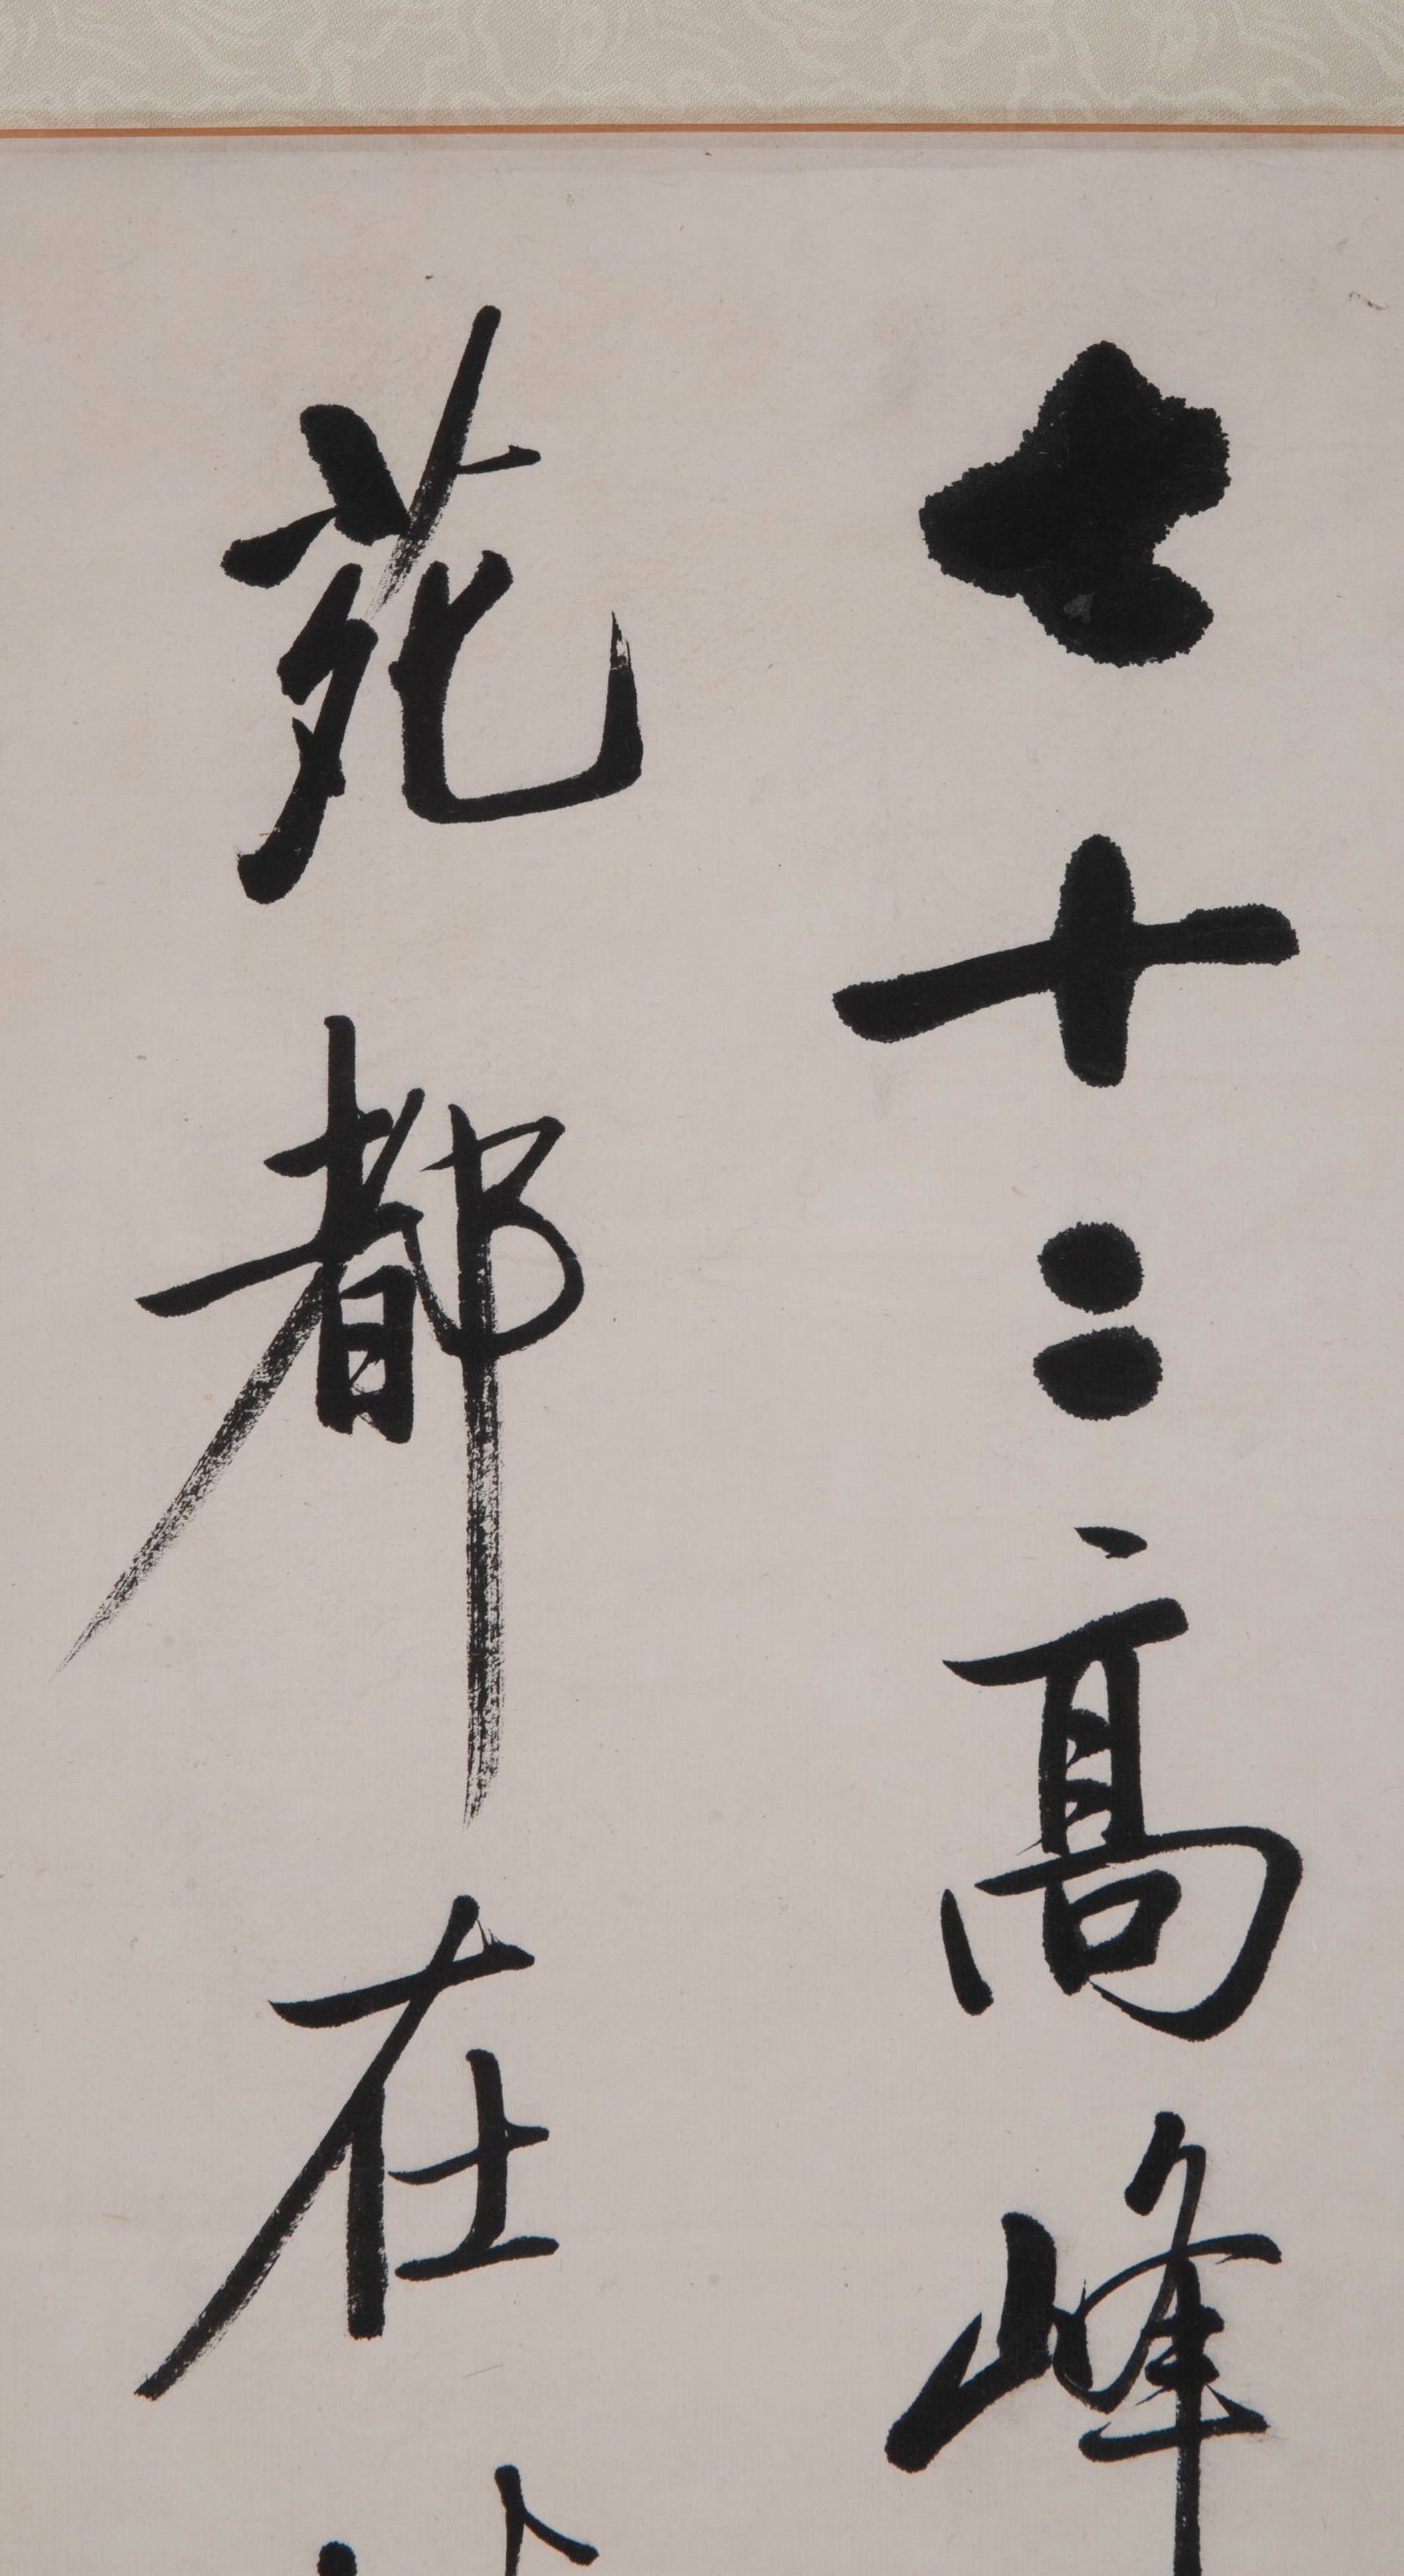 七十二高峰
苑都在